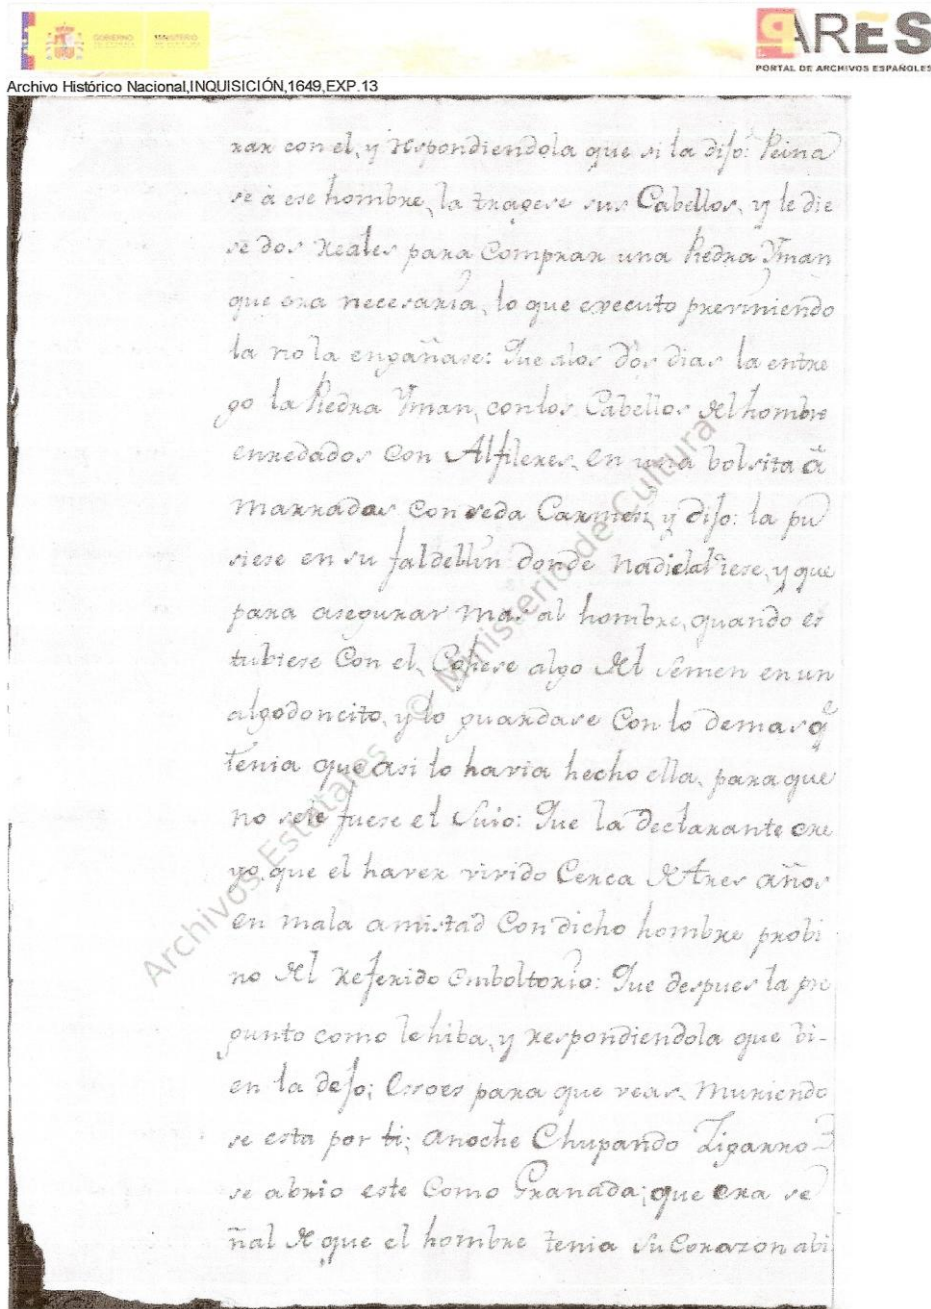 GOBIERNO MINISTERIO
PARES
PORTAL DE ARCHIVOS ESPAÑOLES
Archivo Histórico Nacional,INQUISICIÓN,1649,EXP.13
rar con el, y respondiendola que si la dijo: Peina
se à ese hombre, la tragese sus Cabellos, y le die
se dos reales para Comprar una Piedra Yman
que era necesaria, lo que executo previniendo
la no la engañase: Que alos dos dias la entre
go la Piedra Yman, con los Cabellos del hombre
enredados con Alfileres, en una bolsita a
marrados con seda Carmesi, y dijo: la pu
siese en su faldellin donde nadie la viese, y que
para asegurar mas al hombre, quando es
tubiese Con el, Cojiese algo del semen en un
algodoncito, y lo guardase Con lo demas q̃
tenia que asi lo havia hecho ella, para que
no sele fuese el suio: Que la declarante cre
yo, que el haver vivido Cerca de tres años
en mala amistad Con dicho hombre probi
no del referido emboltorio: Que despues la pre
gunto como le hiba, y respondiendola que bi-
en la dejo; Esoes para que veas, muriendo
se esta por ti; anoche Chupando Zigarro
se abrio este Como Granada; que era se
ñal de que el hombre tenia su Corazon abi
Archivos Estatales © Ministerio de Cultura